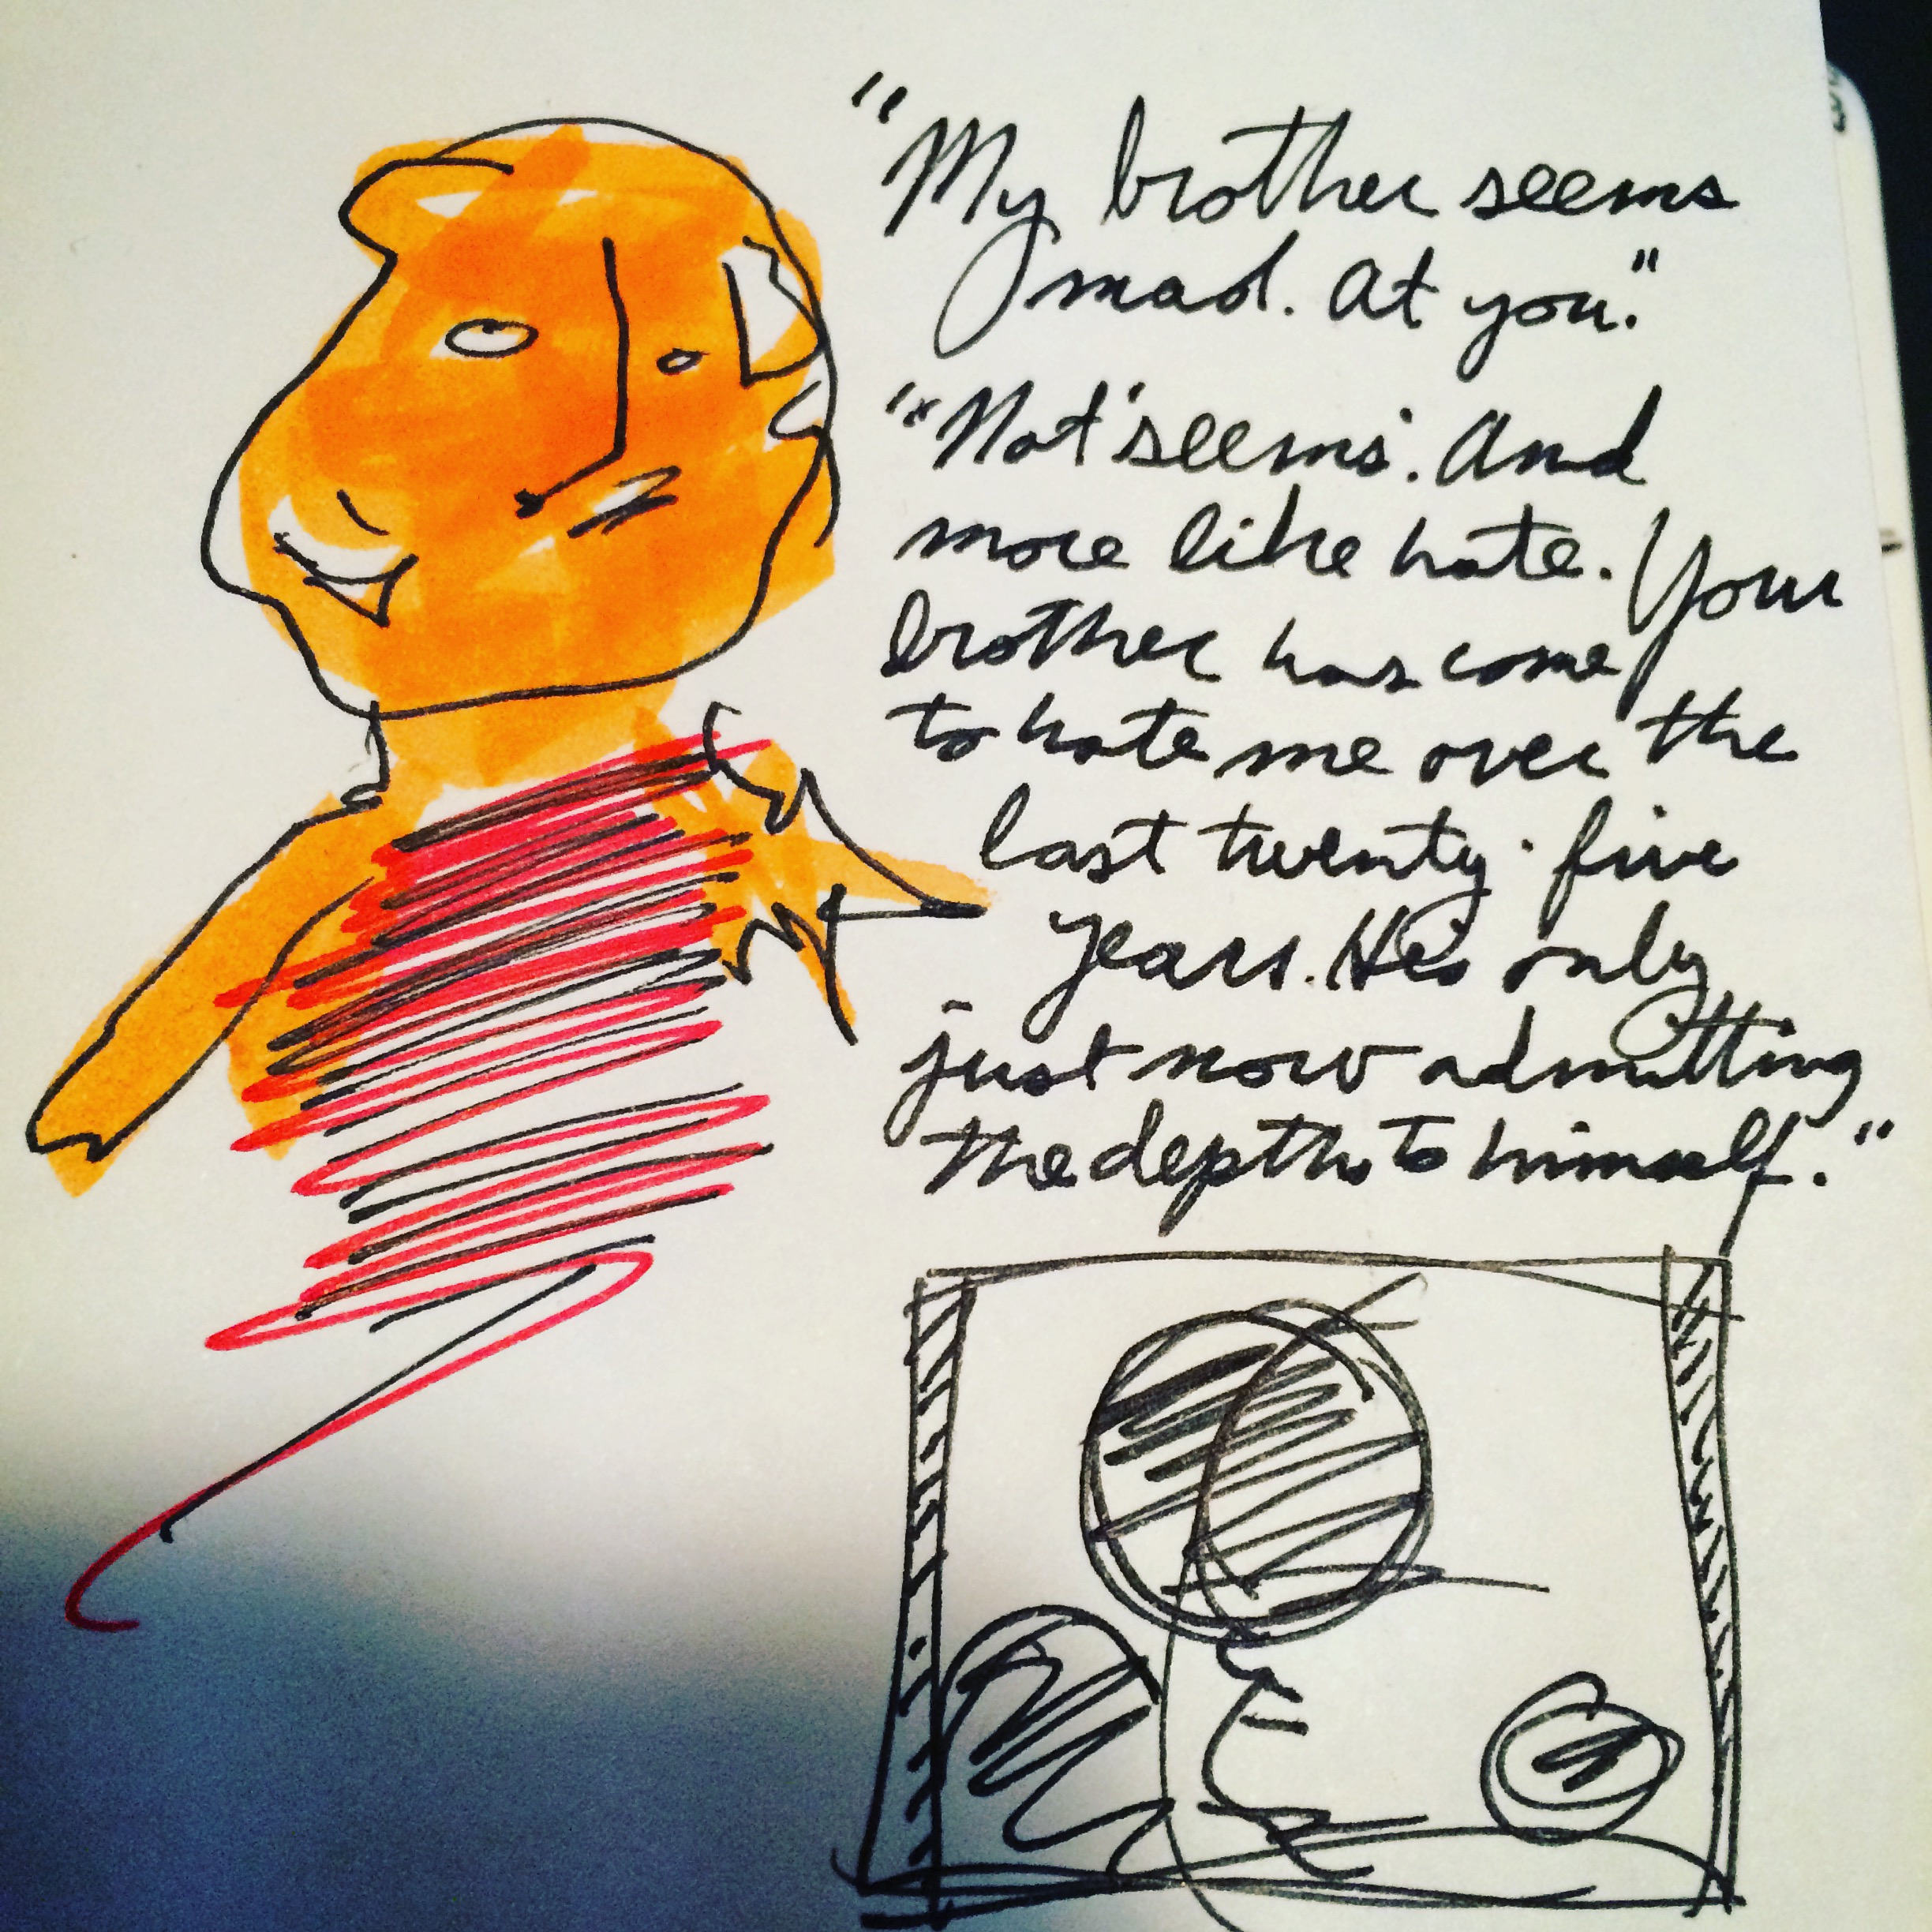 "My brother seems
mad. At you."
"Not 'seems'. And
more like hate. Your
brother has come
to hate me over the
last twenty-five
years. He's only
just now admitting
the depths to himself."